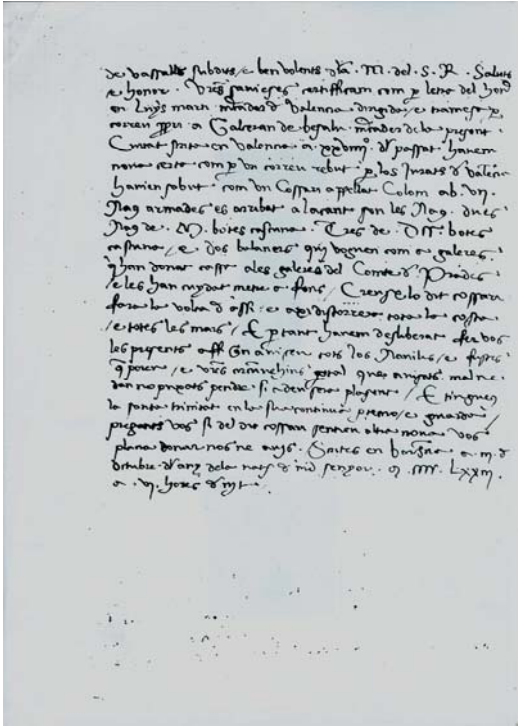 de vassalls subdits / e ben volents dla. M. del. S. R. Saluts
e honor. Vrēs savieses certifficam com p letra del honor
en Luys marti mcader d Valencia dirigida / e tramesa p
correu ppri a Galceran de besalu. mcader de la present
Ciutat scrita en Valencia a. xxviiii. dl passat havem
nova certa com p un correu rebut. p los Jurats d Valencia
havien sabut com un Cossari appellat Colom ab. vii.
Naus armades es arribat a lacant son les Naus. dues
Naus de. M. botes cascuna. Tres de. D. botes
cascuna / e dos balaners qui voguen com a galeres.
q han donat cassa a les galeres del Comte d Prades
e les han cuydat metre a fons / Crense lo dit cossari
fara la volta d assi e axi discorrera tota la costa
e totes les mars / E p tant havem deliberat fer vos
les presents aff en aviseu tots los Navilis / e fustes
q poreu / e vrēs per tal ques avisats mal ne
dan no puxats pendre si a deu sera plasent / E tingueus
la santa trinitat en la sua continua / e guarda /
pregants vos si del dit cossari sentieu altra nova vos
placia donar nos ne avis. Scrites en barchna a. iii. d
octubre dl any de la nat d nre senyor. M. CCCC. LXXIII.
a. vi. hores d nit.